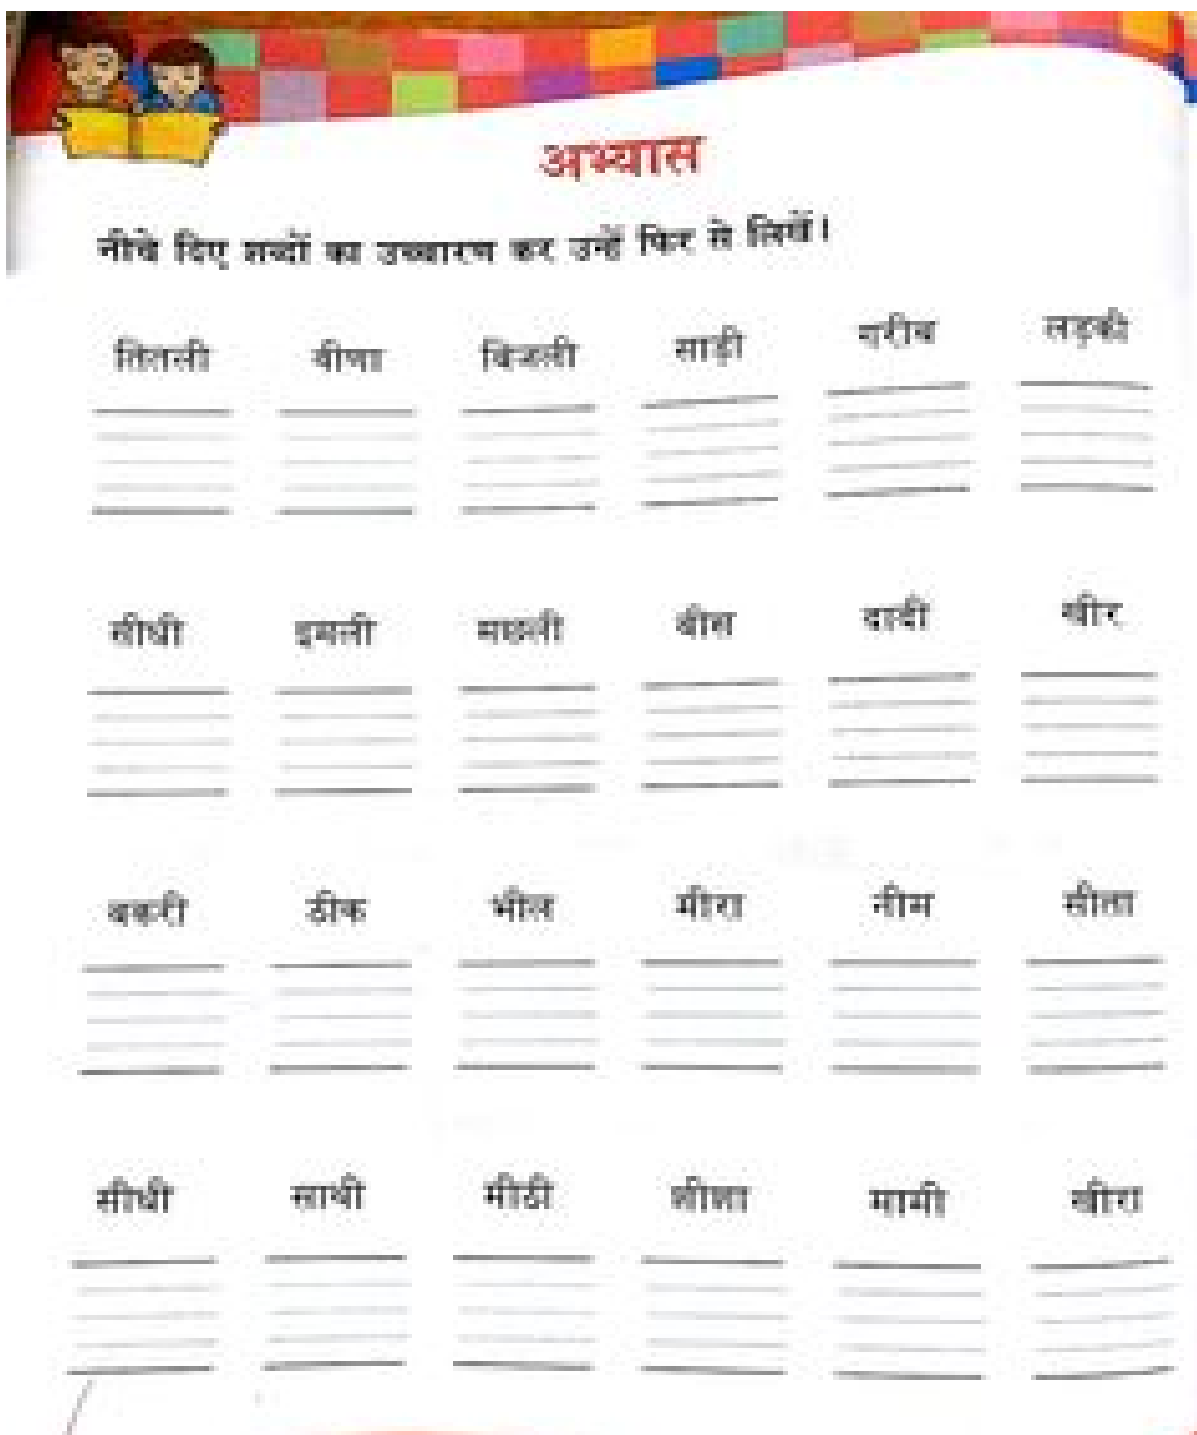 अभ्यास
नीचे दिए शब्दों का उच्चारण कर उन्हें फिर से लिखें।
तितली वीणा बिजली साड़ी गरीब लड़की
सीधी इमली मछली बीस दादी खीर
बकरी ठीक भील मीरा नीम सीता
सीधी साथी मीठी शीशा मामी खीरा